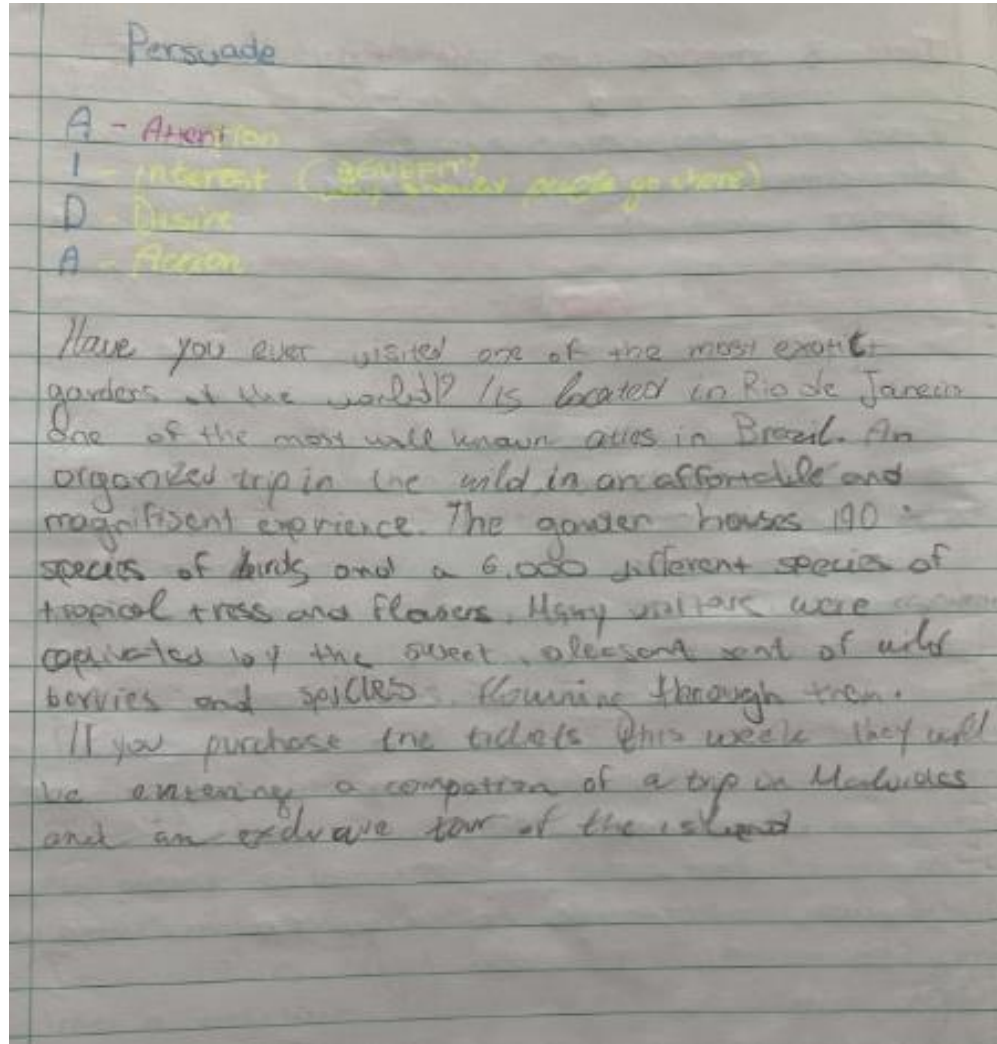 Persuade
A - Attention
I - Interest ( benefit? why should people go there)
D - Desire
A - Action
Have you ever visited one of the most exotic
gardens of the world? Its located in Rio de Janeiro
One of the most well known cities in Brazil. An
organized trip in the wild in an affortable and
magnifisent exprience. The garden houses 190
species of birds and a 6.000 different species of
tropical tress and flowers. Many visitors were
captivated by the sweet, pleasant sent of wild
berries and spicies flowning through them.
If you purchase the tickets this week they will
be entering a compation of a trip in Maldives
and an exclusive tour of the island